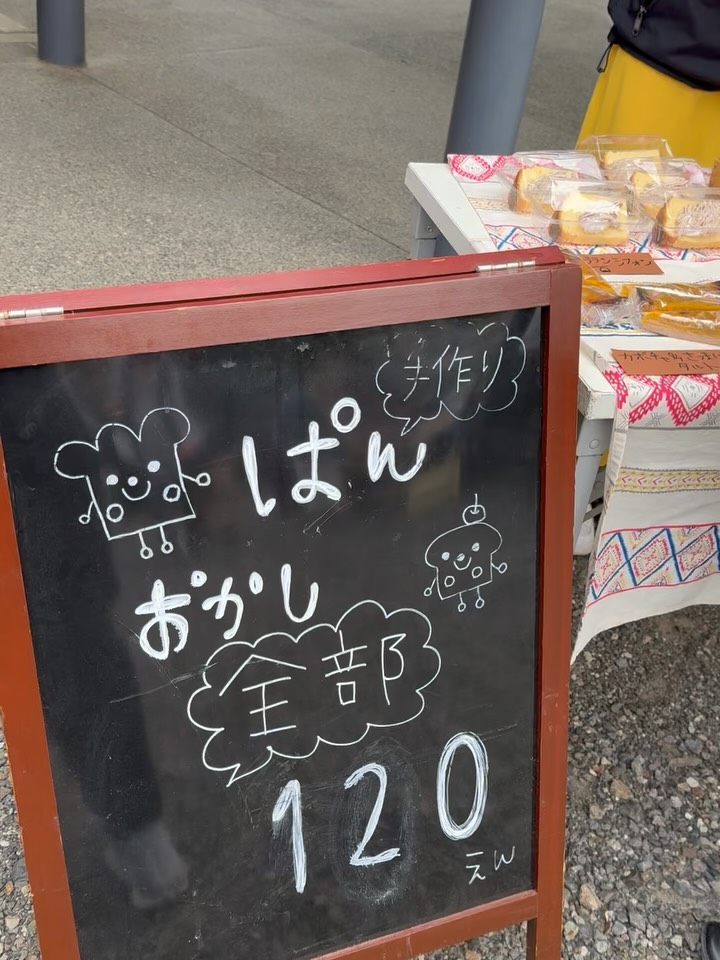 手作り
ぱん
おかし
全部
120
えん
タルト